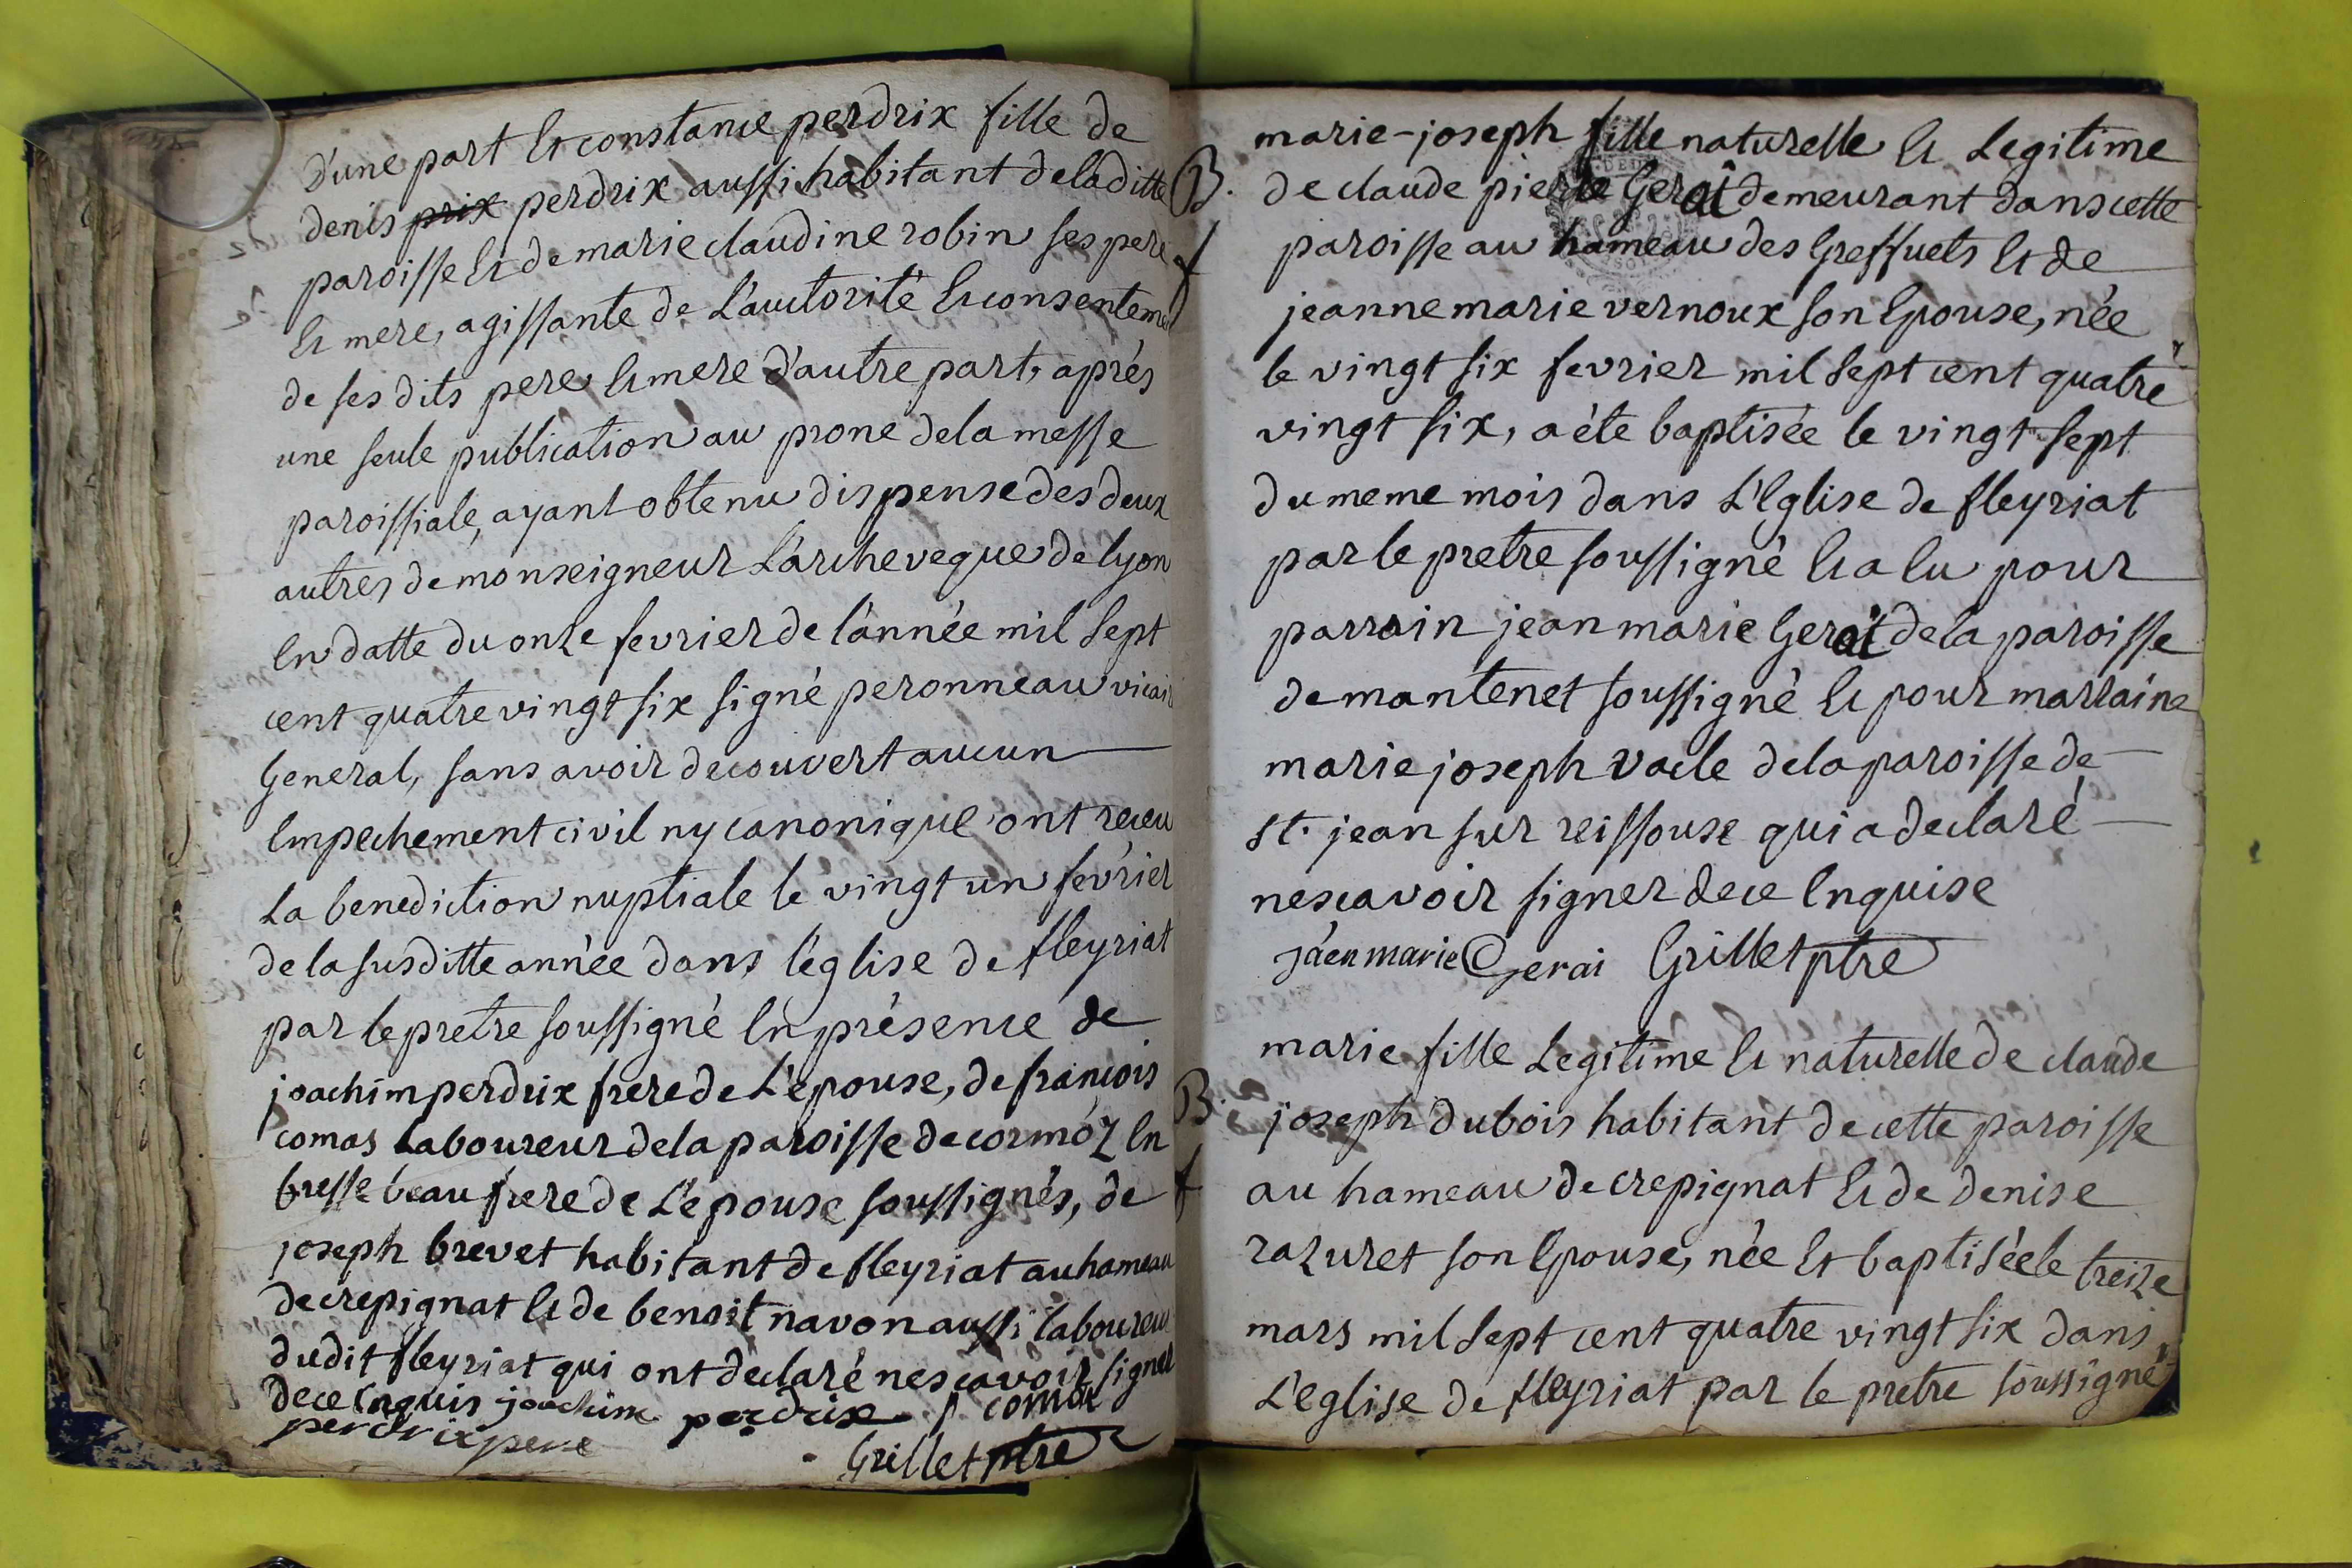 d'une part et constance perdrix fille de
denis prix perdrix aussi habitant de la ditte
paroisse et de marie claudine robin ses pere
et mere, agissante de L'autorité et consenteme
de ses dits pere et mere d'autre part, aprés
une seule publication au prone de la messe
paroissiale, ayant obtenu dispense des deux
autres de monseigneur L'archeveque de lyon
en datte du onze fevrier de l'année mil sept
cent quatre vingt six signé peronneau vicai
General, sans avoir decouvert aucun
empechement civil ny canonique ont receu
La benediction nuptiale le vingt un fevrier
de la susditte année dans l'église de fleyriat
par le pretre soussigné en présence de
joachim perdrix frere de L'epouse, de francois
comas Laboureur de la paroisse de cormóz en
bresse beau frere de L'epouse soussignés, de
joseph brevet habitant de fleyriat au hameau
de crepignat et de benoit navon aussi laboureur
dudit fleyriat qui ont declaré ne scavoir signer
de ce enquis joachim perdrix f comas
perdrix pere
Grillet ptre
marie-joseph fille naturelle et Legitime
B. de claude pierre Gerai demeurant dans cette
f paroisse au hameau des Gressuets et de
jeanne marie vernoux son epouse, née
le vingt six fevrier mil sept cent quatre
vingt six, a éte baptisée le vingt sept
du meme mois dans L'Eglise de fleyriat
par le pretre soussigné et a eu pour
parrain jean marie Gerai de la paroisse
de mantenet soussigné et pour marraine
marie joseph vacle de la paroisse de
st. jean sur reissouse qui a declaré
ne scavoir signer de ce enquise
jaen marie Gerai Grillet ptre
marie fille Legitime et naturelle de claude
B. joseph dubois habitant de cette paroisse
f au hameau de crepignat et de denise
razuret son epouse, née et baptisée le treize
mars mil sept cent quatre vingt six dans
L'eglise de fleyriat par le pretre soussigné